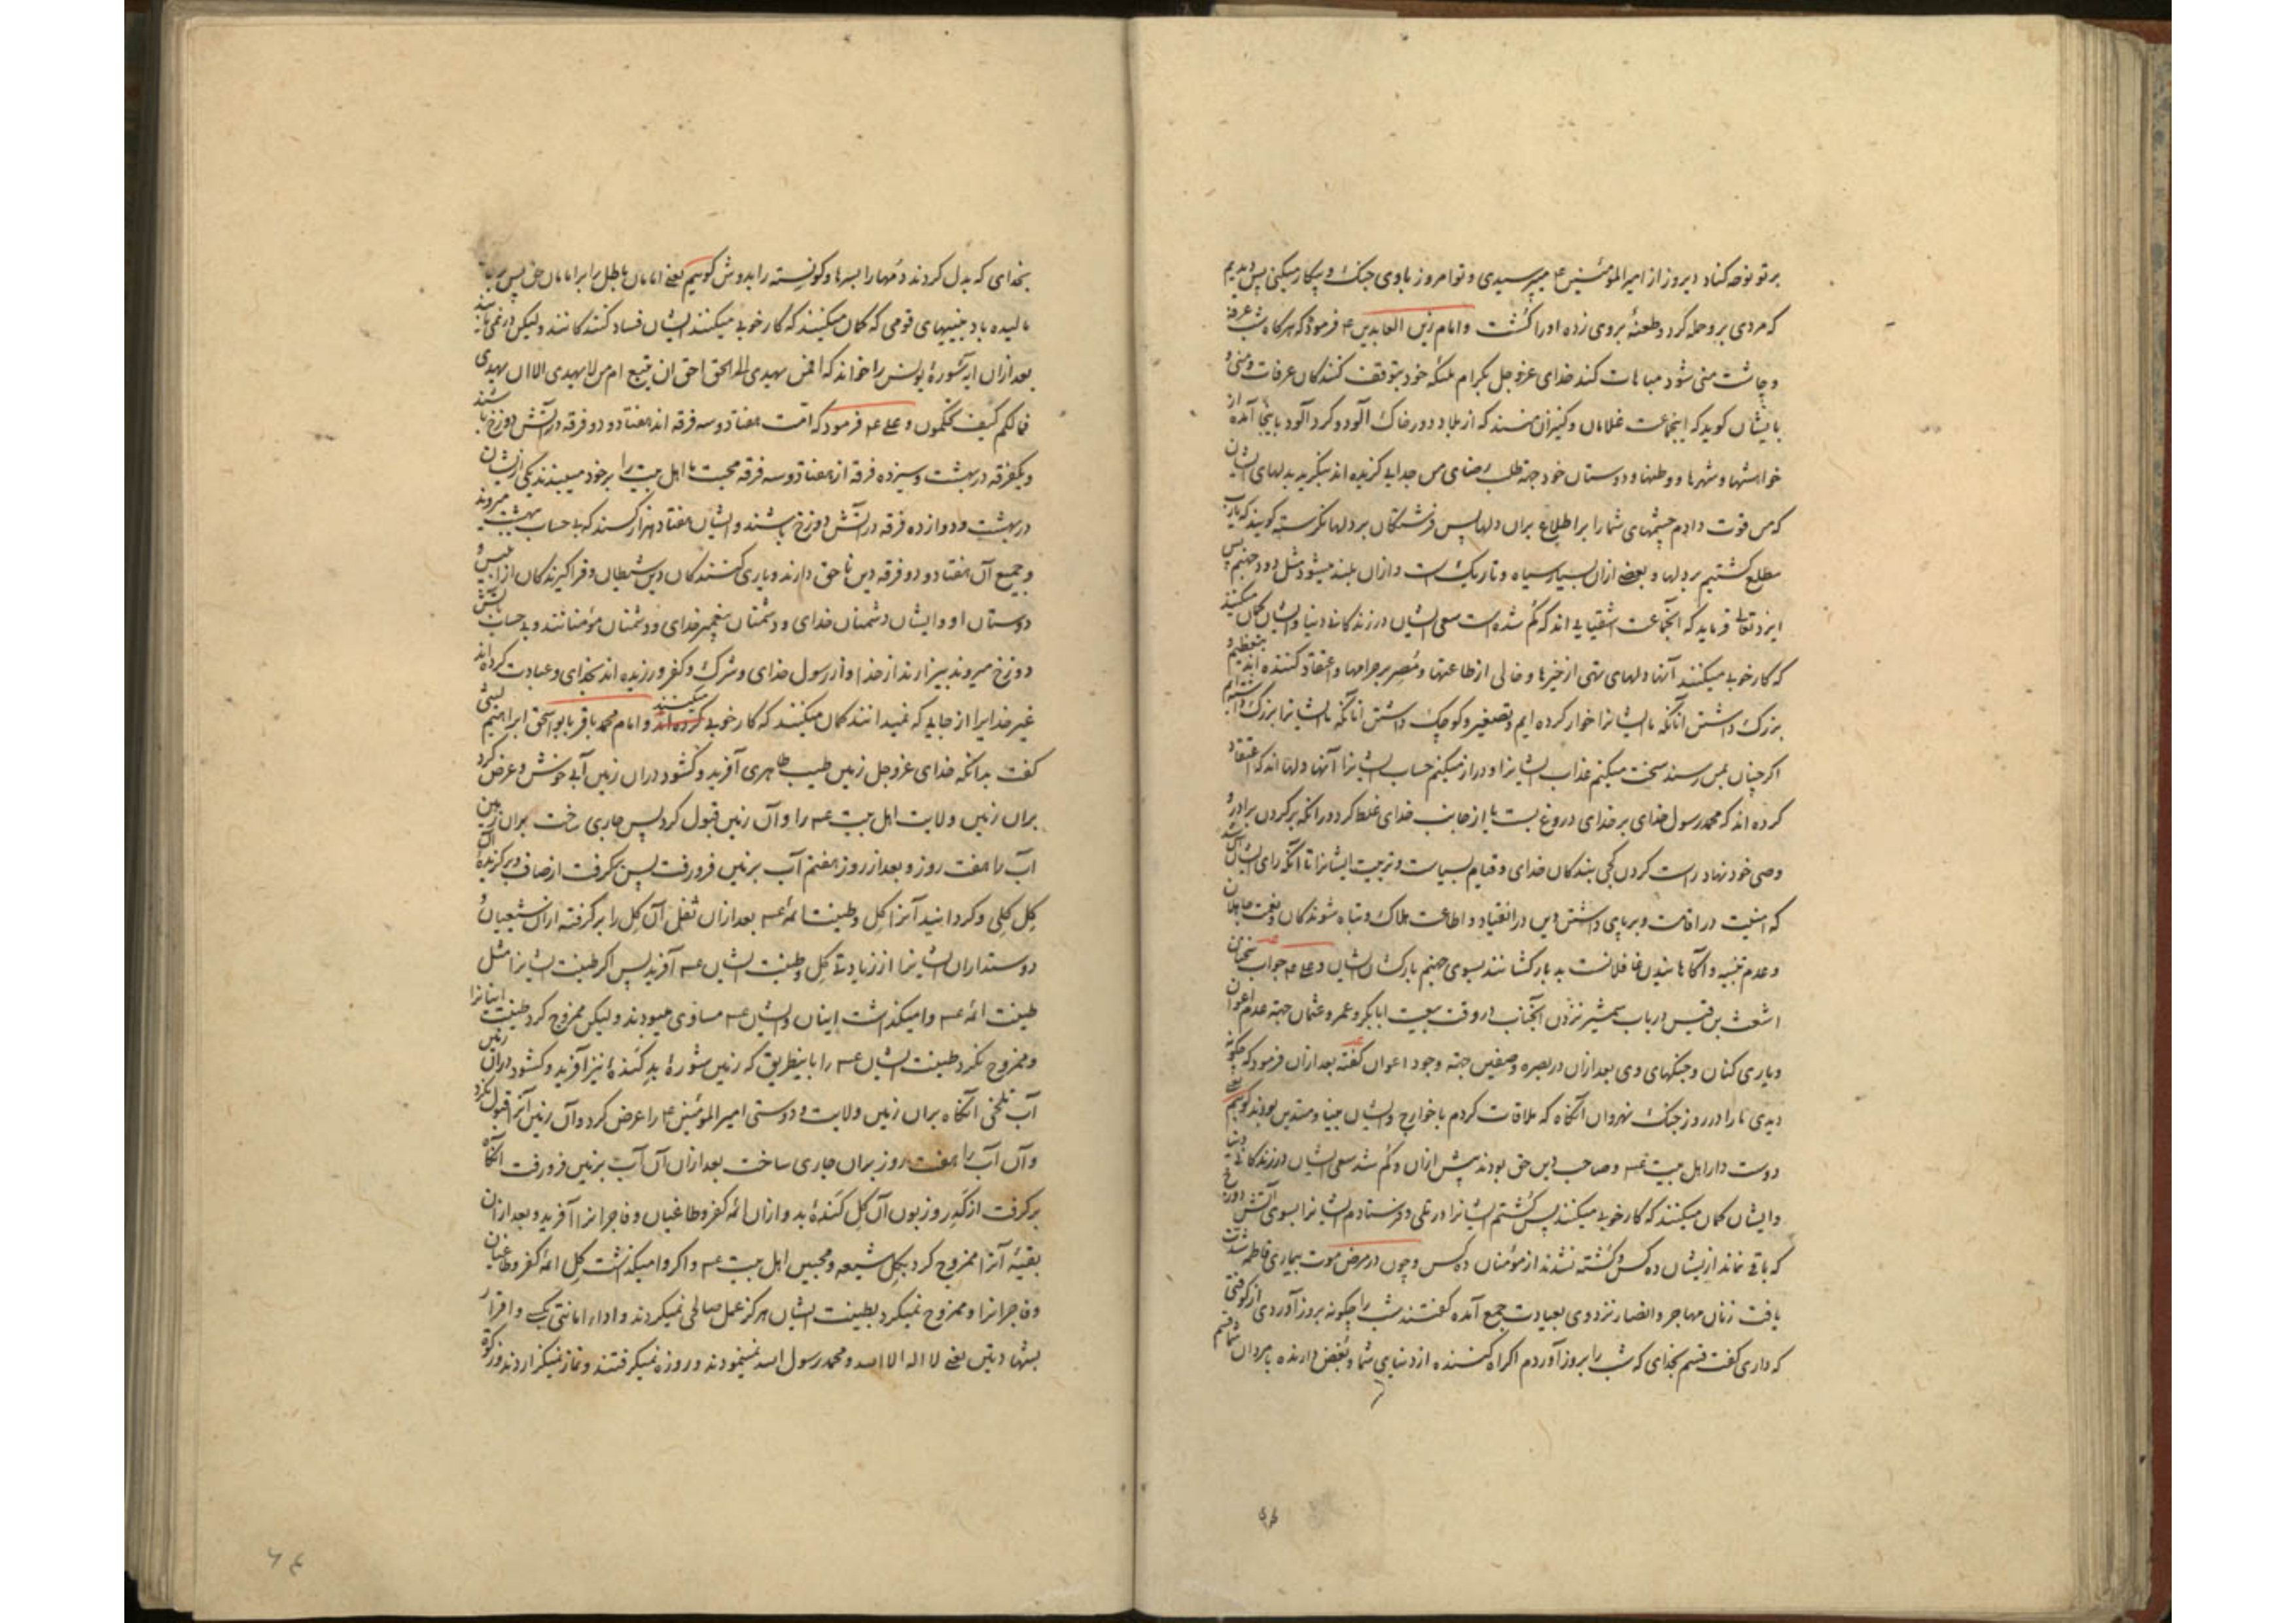 بر تو نوحه کناد دیروز از امیر المؤمنین ع میپرسیدی و تو امروز با وی جنک و پیکار میکنی پس دیدیم
که مردی برو حمله کرد و طعنهٔ بروی زده او را کشت و امام زین العابدین ع فرمود که هر کاه شب عرفه
و چاشت منی شود مباهات کند خدای عزوجل بکرام ملئکه خود بتوقف کنندکان عرفات و منی و
بایشان کوید که اینجماعت غلامان و کنیزان منند که از بلاد دور خاک آلود و کرد آلود باینجا آمده از
خواهشها و شهرها و وطنها و دوستان خود جهة طلب رضای من جدایی کزیده اند بنکرید بدلهای ایشان
که من قوت دادم چشمهای شما را بر اطلاع بران دلها پس فرشتکان بر دلها نکرسته کویند که یارب
مطلع کشتیم بر دلها و بعضی ازان بسیار سیاه و تاریک است و ازان بلند میشود مثل دود جهنم پس
ایزد تعالی فرماید که آنجماعت اشقیایی اند که کم شده است سعی ایشان در زندکانی دنیا و ایشان کمان میکنند
که کار خوب میکنند آنها دلهای تهی از خیرها و خالی از طاعتها و مصر بر حرامها و اعتقاد کننده اند بتعظیم و
بزرک داشتن آنانکه ما ایشانرا خوار کرده ایم و تصغیر و کوچک داشتن آنانکه ما ایشانرا بزرک داشته ایم
اکر چنان بمن رسند سخت میکنم عذاب ایشانرا و دراز میکنم حساب ایشانرا آنها دلها اند که اعتقاد
کرده اند که محمد رسول خدای بر خدای دروغ بست یا از جانب خدای غلط کرد در آنکه بر کردن برادر و
وصی خود نهاد راست کردن کجی بندکان خدای و قیام بسیاست و تربیت ایشانرا تا آنکه رای ایشان
که امنیت در اقامت و برپای داشتن دین در انقیاد و اطاعت هلاک و تباه شوندکان و نعت جاهلان
و عدم تنبیه و آکاهانیدن غافلانست بد بارکشانند بسوی جهنم بارکشان ایشان و علی ع جواب سخنان
اشعث بن قیس در باب شمشیر نزدن آنجناب در وقت بیعت ابابکر و عمر و عثمان جهة عدم اعوان
و یاری کنان و جنکهای وی بعد ازان در بصره و صفین جهة وجود اعوان کفته بعد ازان فرمود که چکونه
دیدی ما را در روز جنک نهروان آنکاه که ملاقات کردم با خوارج و ایشان بینا و متدین بودند کوییم یعنی
دوست دار اهل بیت عم و صاحب دین حق بودند پیش ازان و کم شد سعی ایشان در زندکانی دنیا
و ایشان کمان میکنند که کار خوب میکنند پس کشتم ایشانرا در تلی و فرستادم ایشانرا بسوی آتش دوزخ
که باقی نماند از ایشان ده کس و کشته نشدند از مؤمنان ده کس و چون در مرض موت بیماری فاطمه شدت
یافت زنان مهاجر و انصار نزد وی بعیادت جمع آمده کفتند شب را چکونه بروز آوردی از کوفتی
که داری کفت قسم بخدای که شب را بروز آوردم اکراه کننده از دنیای شما و بغض دارنده بمردان شما قسم
۶۶
بخدای که بدل کردند دمها را بسرها و کونسته را بدوش کوییم یعنی امامان باطل را بر امامان حق پس بر خاک
مالیده باد بینیهای قومی که کمان میکنند که کار خوب میکنند ایشان فساد کنندکانند ولیکن در نمی یابند
بعد ازان ایه سورهٔ یونس را خواند که افمن یهدی الی الحق احق ان یتبع ام من لا یهدی الا ان یهدی
فمالکم کیف تحکمون و علی ع فرمود که امت هفتاد و سه فرقه اند هفتاد و دو فرقه در آتش دوزخ باشند
و یکفرقه در بهشت و سیزده فرقه از هفتاد و سه فرقه محبت ما اهل بیت را بر خود میبندند یکی از ایشان
در بهشت و دوازده فرقه در آتش دوزخ باشند و ایشان هفتاد هزار کسند که بی حساب ببهشت میروند
و جمیع آن هفتاد و دو فرقه دین ناحق دارند و یاری کنندکان دین شیطان و فراکیرندکان از ابلیس و
دوستان او و ایشان دشمنان خدای و دشمنان پیغمبر خدای و دشمنان مؤمنانند و بی حساب بآتش
دوزخ میروند بیزارند از خدا و از رسول خدای و شرک و کفر ورزیده اند بخدای و عبادت کرده اند
غیر خدایرا از جایی که نمیدانند کمان میکنند که کار خوب کرده اند میکنند و امام محمد باقر بابو اسحق ابراهیم لیثی
کفت بدانکه خدای عزوجل زمین طیب طاهری آفرید و کشود دران زمین آبی خوش و عرض کرد
بران زمین ولایت اهل بیت عم را و آن زمین قبول کرد پس جاری ساخت بران زمین
آب را هفت روز و بعد از روز هفتم آب بزمین فرو رفت پس بکرفت از صاف و برکزیدهٔ آن
کل کلی و کردانید آنرا کل و طینت ائمه عم بعد ازان ثفل آن کل را برکرفته ازان شیعیان و
دوستداران ایشانرا از زیادتی کل و طینت ایشان عم آفرید پس اکر طینت ایشانرا مثل
طینت ائمه عم وامیکذاشت اینان و ایشان عم مساوی میبودند ولیکن ممزوج کرد طینت اینانرا
و ممزوج نکرد طینت ایشان عم را باینطریق که زمین شورهٔ بد کندهٔ نیز آفرید و کشود دران زمین
آب تلخی آنکاه بران زمین ولایت و دوستی امیر المؤمنین ع را عرض کرد و آن زمین آنرا قبول نکرد
و آن آب را هفت روز بران جاری ساخت بعد ازان آن آب بزمین فرو رفت آنکاه
برکرفت از کدر و زبون آن کل کندهٔ بد و ازان ائمه کفر و طاغیان و فاجرانرا آفرید و بعد ازان
بقیهٔ آنرا ممزوج کرد بکل شیعه و محبین اهل بیت عم و اکر وامیکذاشت کل ائمه کفر و طاغیان
و فاجرانرا و ممزوج نمیکرد بطینت ایشان هرکز عمل صالحی نمیکردند و ادا امانتی و اقرار
بشهادتین یعنی لا اله الا الله و محمد رسول الله نمینمودند و روزه نمیکرفتند و نماز نمیکزاردند و زکوة
۶۷